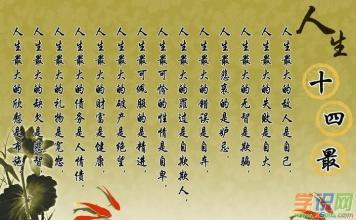 人生
十四最
人生最大的敌人是自己,
人生最大的失败是自大,
人生最大的无智是欺骗,
人生最悲哀的是妒忌,
人生最大的错误是自弃,
人生最大的罪过是自欺欺人,
人生最可怜的性情是自卑,
人生最可佩服的是精进,
人生最大的破产是绝望
人生最大的财富是健康,
人生最大的债务是人情债
人生最大的礼物是宽恕
人生最大的缺欠是悲智
人生最大的欣慰是布施
学识网